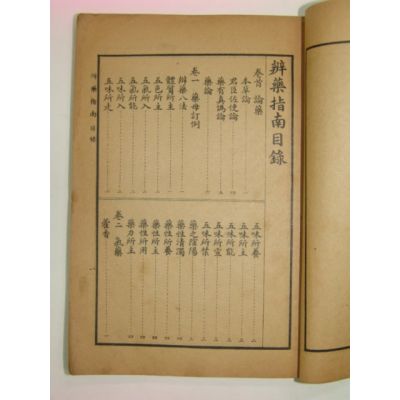 辨藥指南目錄
卷首 論藥
本草論
君臣佐使論
藥有真僞論
藥論
卷一 藥母訂例
辨藥八法
體質所主
五色所主
五氣所入
五氣所能
五味所入
五味所走
五味所養
五味所主
五味所能
五味所宜
五味所禁
藥之陰陽
藥性清濁
藥性所養
藥性所主
藥性所用
藥力所主
卷二 氣藥
藿香
辨藥指南 目錄